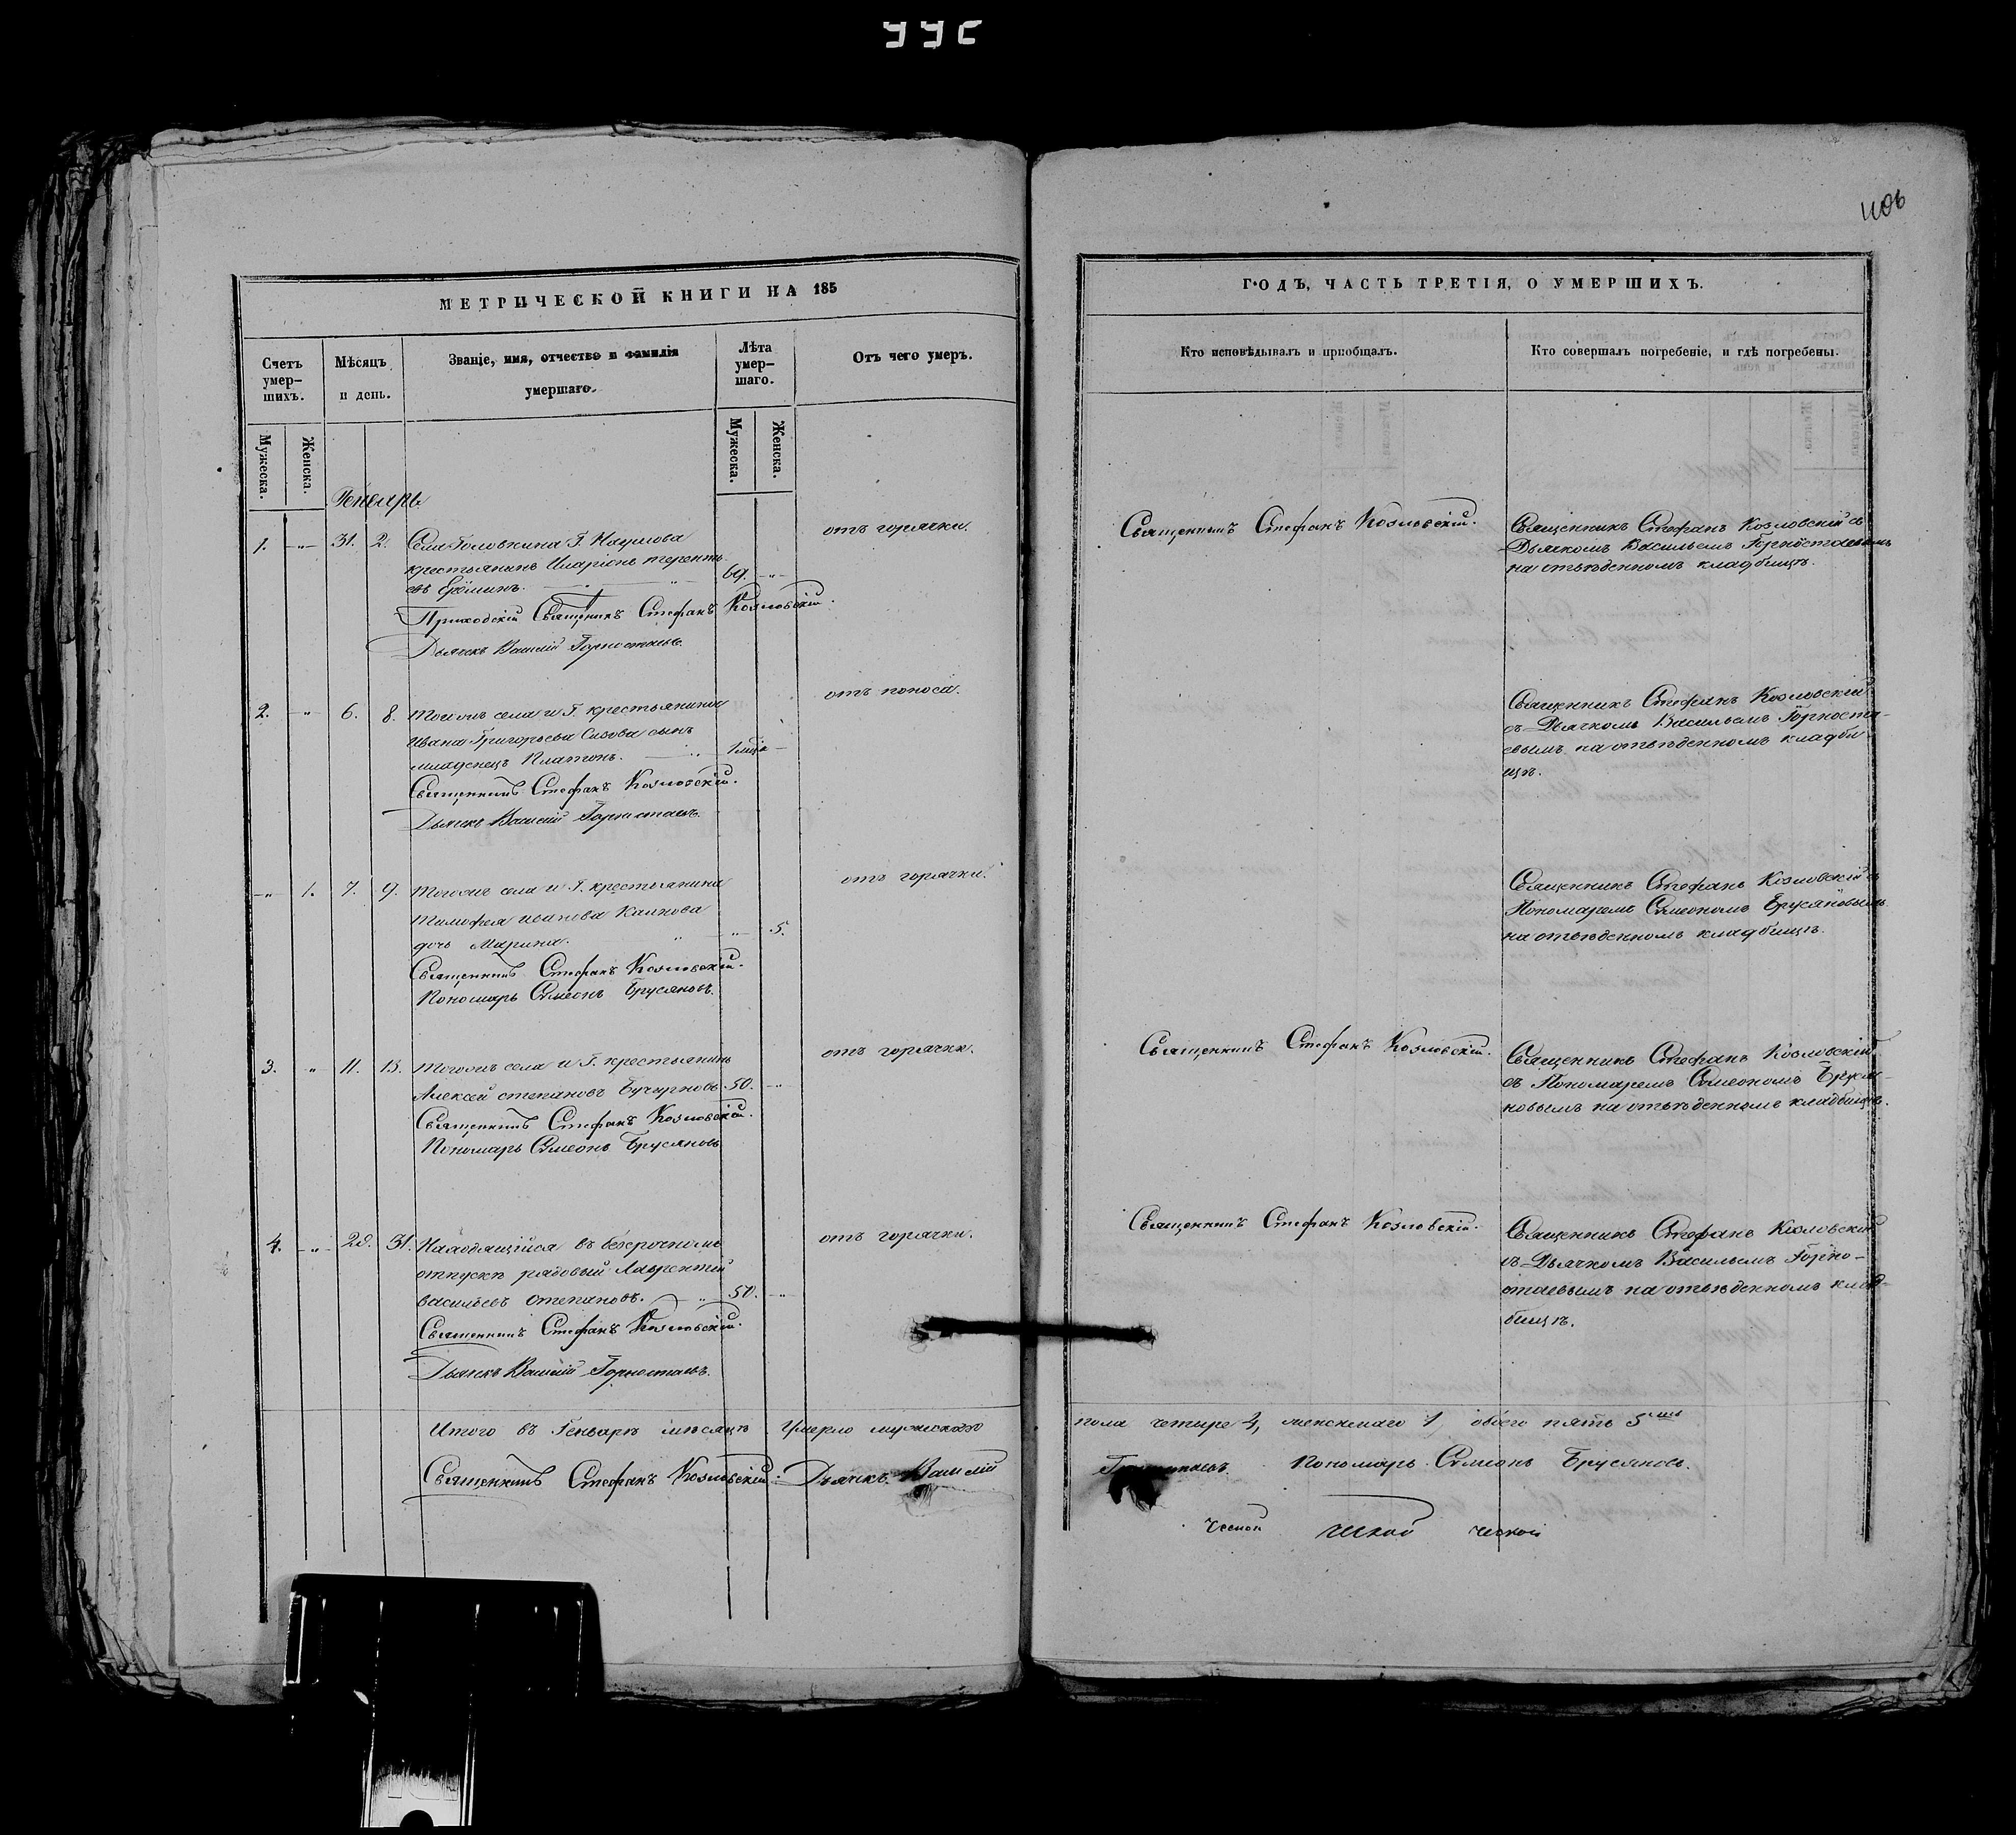 1106
МЕТРИЧЕСКОЙ КНИГИ НА 185
ГОДЪ, ЧАСТЬ ТРЕТІЯ, О УМЕРШИХЪ.
Счетъ умер-шихъ.
Мѣсяцъ и день.
Званіе, имя, отчество и фамилія
умершаго.
Лѣта умер-шаго.
Отъ чего умеръ.
Кто исповѣдывалъ и пріобщалъ.
Кто совершалъ погребеніе, и гдѣ погребены.
Мужеска.
Женска.
Мужеска.
Женска.
Генварь
1. -"- 31. 2. Села Головкина Г. Наумова
крестьянинъ Иларіонъ терентъ-
евъ Ерёминъ. 69. -"-
отъ горячки.
Приходскій Священникъ Стефанъ Козловскій.
Дьячекъ Василій Горностаевъ.
Священникъ Стефанъ Козловскій.
Священникъ Стефанъ Козловскій съ
Дьячкомъ Васильемъ Горностаевымъ
на отведенномъ кладбищѣ.
2. -"- 6. 8. Тогожъ села и Г. крестьянина
Ивана Григорьева Сизова сынъ
младенецъ Платонъ.
отъ поноса.
Священникъ Стефанъ Козловскій.
Дьячекъ Василій Горностаевъ.
Священникъ Стефанъ Козловскій
съ Дьячкомъ Васильемъ Горноста-
евымъ на отведенномъ кладби
щѣ.
-"- 1. 7. 9. Тогожъ села и Г. крестьянина
Тимофея
дочь Марина. " -"- 5.
отъ горячки.
Священникъ Стефанъ Козловскій.
Пономарь Симеонъ Брусяновъ.
Священникъ Стефанъ Козловскій съ
Пономаремъ Симеономъ Брусяновымъ
на отведенномъ кладбищѣ.
3. " 11. 13. Тогожъ села и Г. крестьянинъ
Алексѣй степановъ 50. -"-
отъ горячки.
Священникъ Стефанъ Козловскій.
Пономарь Симеонъ Брусяновъ
Священникъ Стефанъ Козловскій.
Священникъ Стефанъ Козловскій
съ Пономаремъ Симеономъ Бруся-
новымъ на отведенномъ кладбищѣ.
4. -"- 31. Находящійся въ безсрочномъ
отпускѣ рядовый Лаврентій
васильевъ степановъ. " 50. -"-
отъ горячки.
Священникъ Стефанъ Козловскій.
Дьячекъ Василій Горностаевъ.
Священникъ Стефанъ Козловскій.
Священникъ Стефанъ Козловскій
съ Дьячкомъ Васильемъ Горно-
стаевымъ на отведенномъ клад-
бищѣ.
Итого въ Генварѣ мѣсяцѣ умерло мужескаго
пола четыре 4, женскаго 1, обоего пять 5
Священникъ Стефанъ Козловскій. Дьячекъ Василій
Горностаевъ. Пономарь Симеонъ Брусяновъ.
ческой ческой ческой